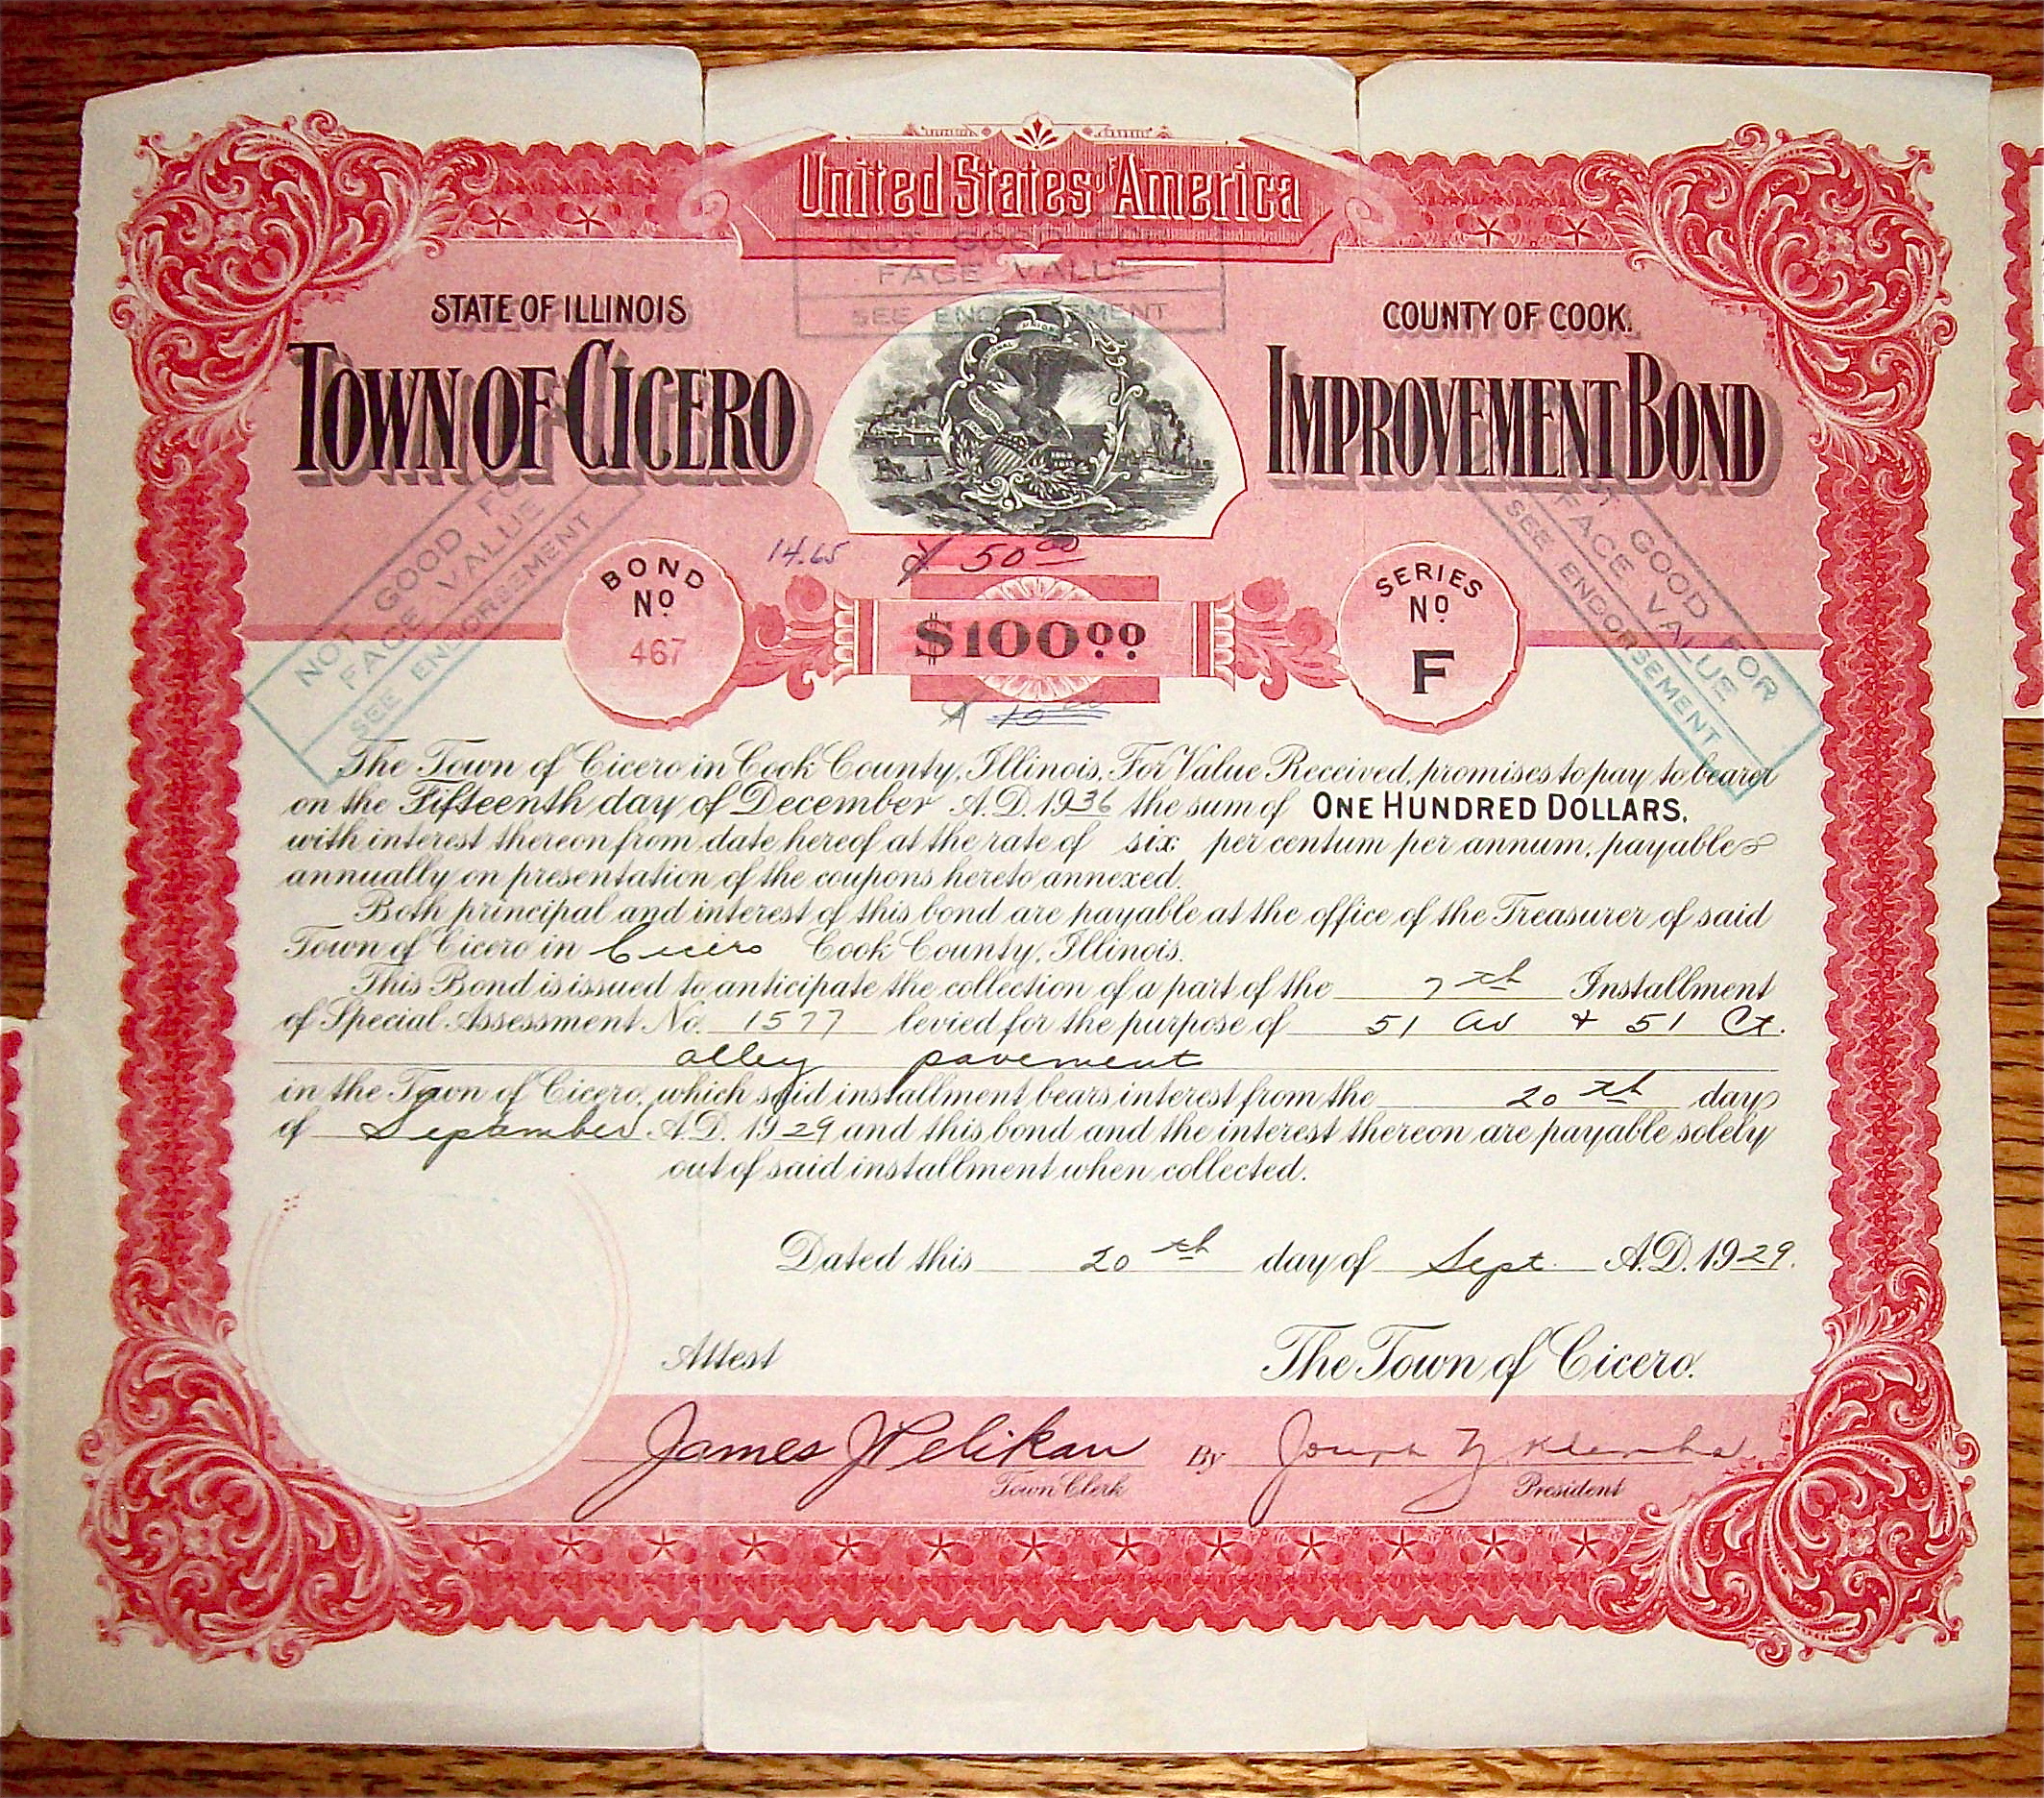 United States of America
NOT GOOD FOR
FACE VALUE
SEE ENDORSEMENT
STATE OF ILLINOIS
COUNTY OF COOK.
TOWN OF CICERO
IMPROVEMENT BOND
NATIONAL UNION
NOT GOOD FOR
FACE VALUE
SEE ENDORSEMENT
NOT GOOD FOR
FACE VALUE
SEE ENDORSEMENT
14.65
$ 50 00
BOND
NO
467
$100 00
SERIES
NO
F
$ 10 00
The Town of Cicero in Cook County, Illinois, For Value Received, promises to pay to bearer
on the Fifteenth day of December A.D. 1936 the sum of ONE HUNDRED DOLLARS.
with interest thereon from date hereof at the rate of six per centum per annum, payable
annually on presentation of the coupons hereto annexed.
Both principal and interest of this bond are payable at the office of the Treasurer of said
Town of Cicero in Cicero Cook County, Illinois.
This Bond is issued to anticipate the collection of a part of the 7th Installment
of Special Assessment No. 1577 levied for the purpose of 51 Av & 51 Ct.
alley pavement
in the Town of Cicero, which said installment bears interest from the 20th day
of September A.D. 1929 and this bond and the interest thereon are payable solely
out of said installment when collected.
Dated this 20th day of Sept. A.D. 1929.
Attest
The Town of Cicero.
James J Pelikan
By Joseph Z Klenha
Town Clerk
President